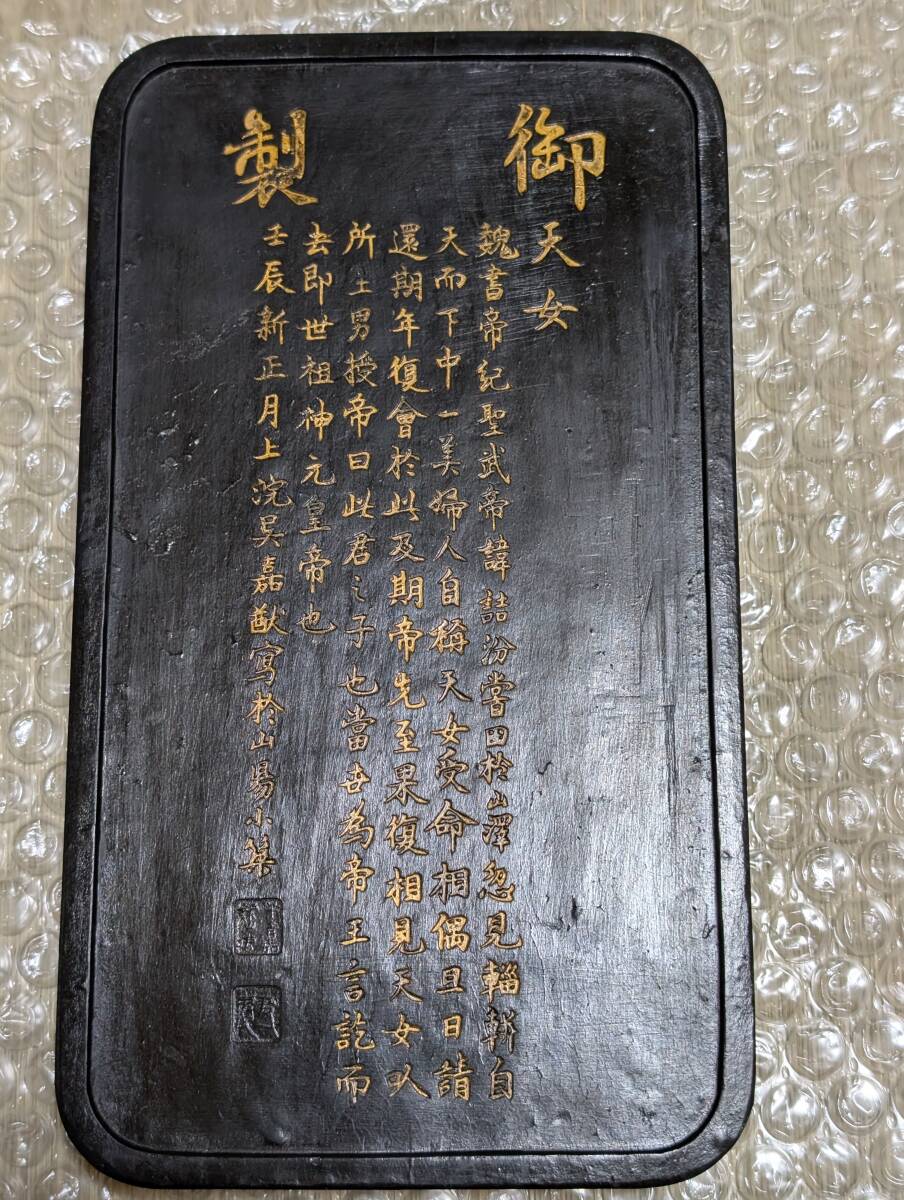 御製
天女
魏書帝紀聖武帝諱詰汾嘗田於山澤忽見輜軿自
天而下中一美婦人自稱天女受命相偶旦日請
還期年復會於此及期帝先至果復相見天女以
所生男授帝曰此君之子也當世為帝王言訖而
去即世祖神元皇帝也
壬辰新正月上浣吳嘉猷寫於山陽小築